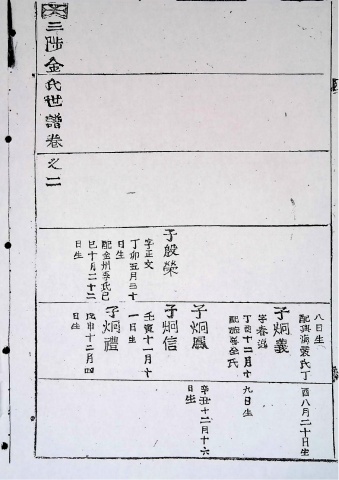 三陟金氏世譜卷之二
八日生
配興海裵氏丁
酉八月二十日生
子炯義
字春鴻
丁酉十二月十
九日生
金氏
子炯鳳
辛丑十二月十六
日生
子炯信
壬寅十一月十
一日生
子炯禮
戊申十二月四
日生
子殷榮
字正文
丁卯五月三十
日生
配全州李氏己
巳十月二十二
日生